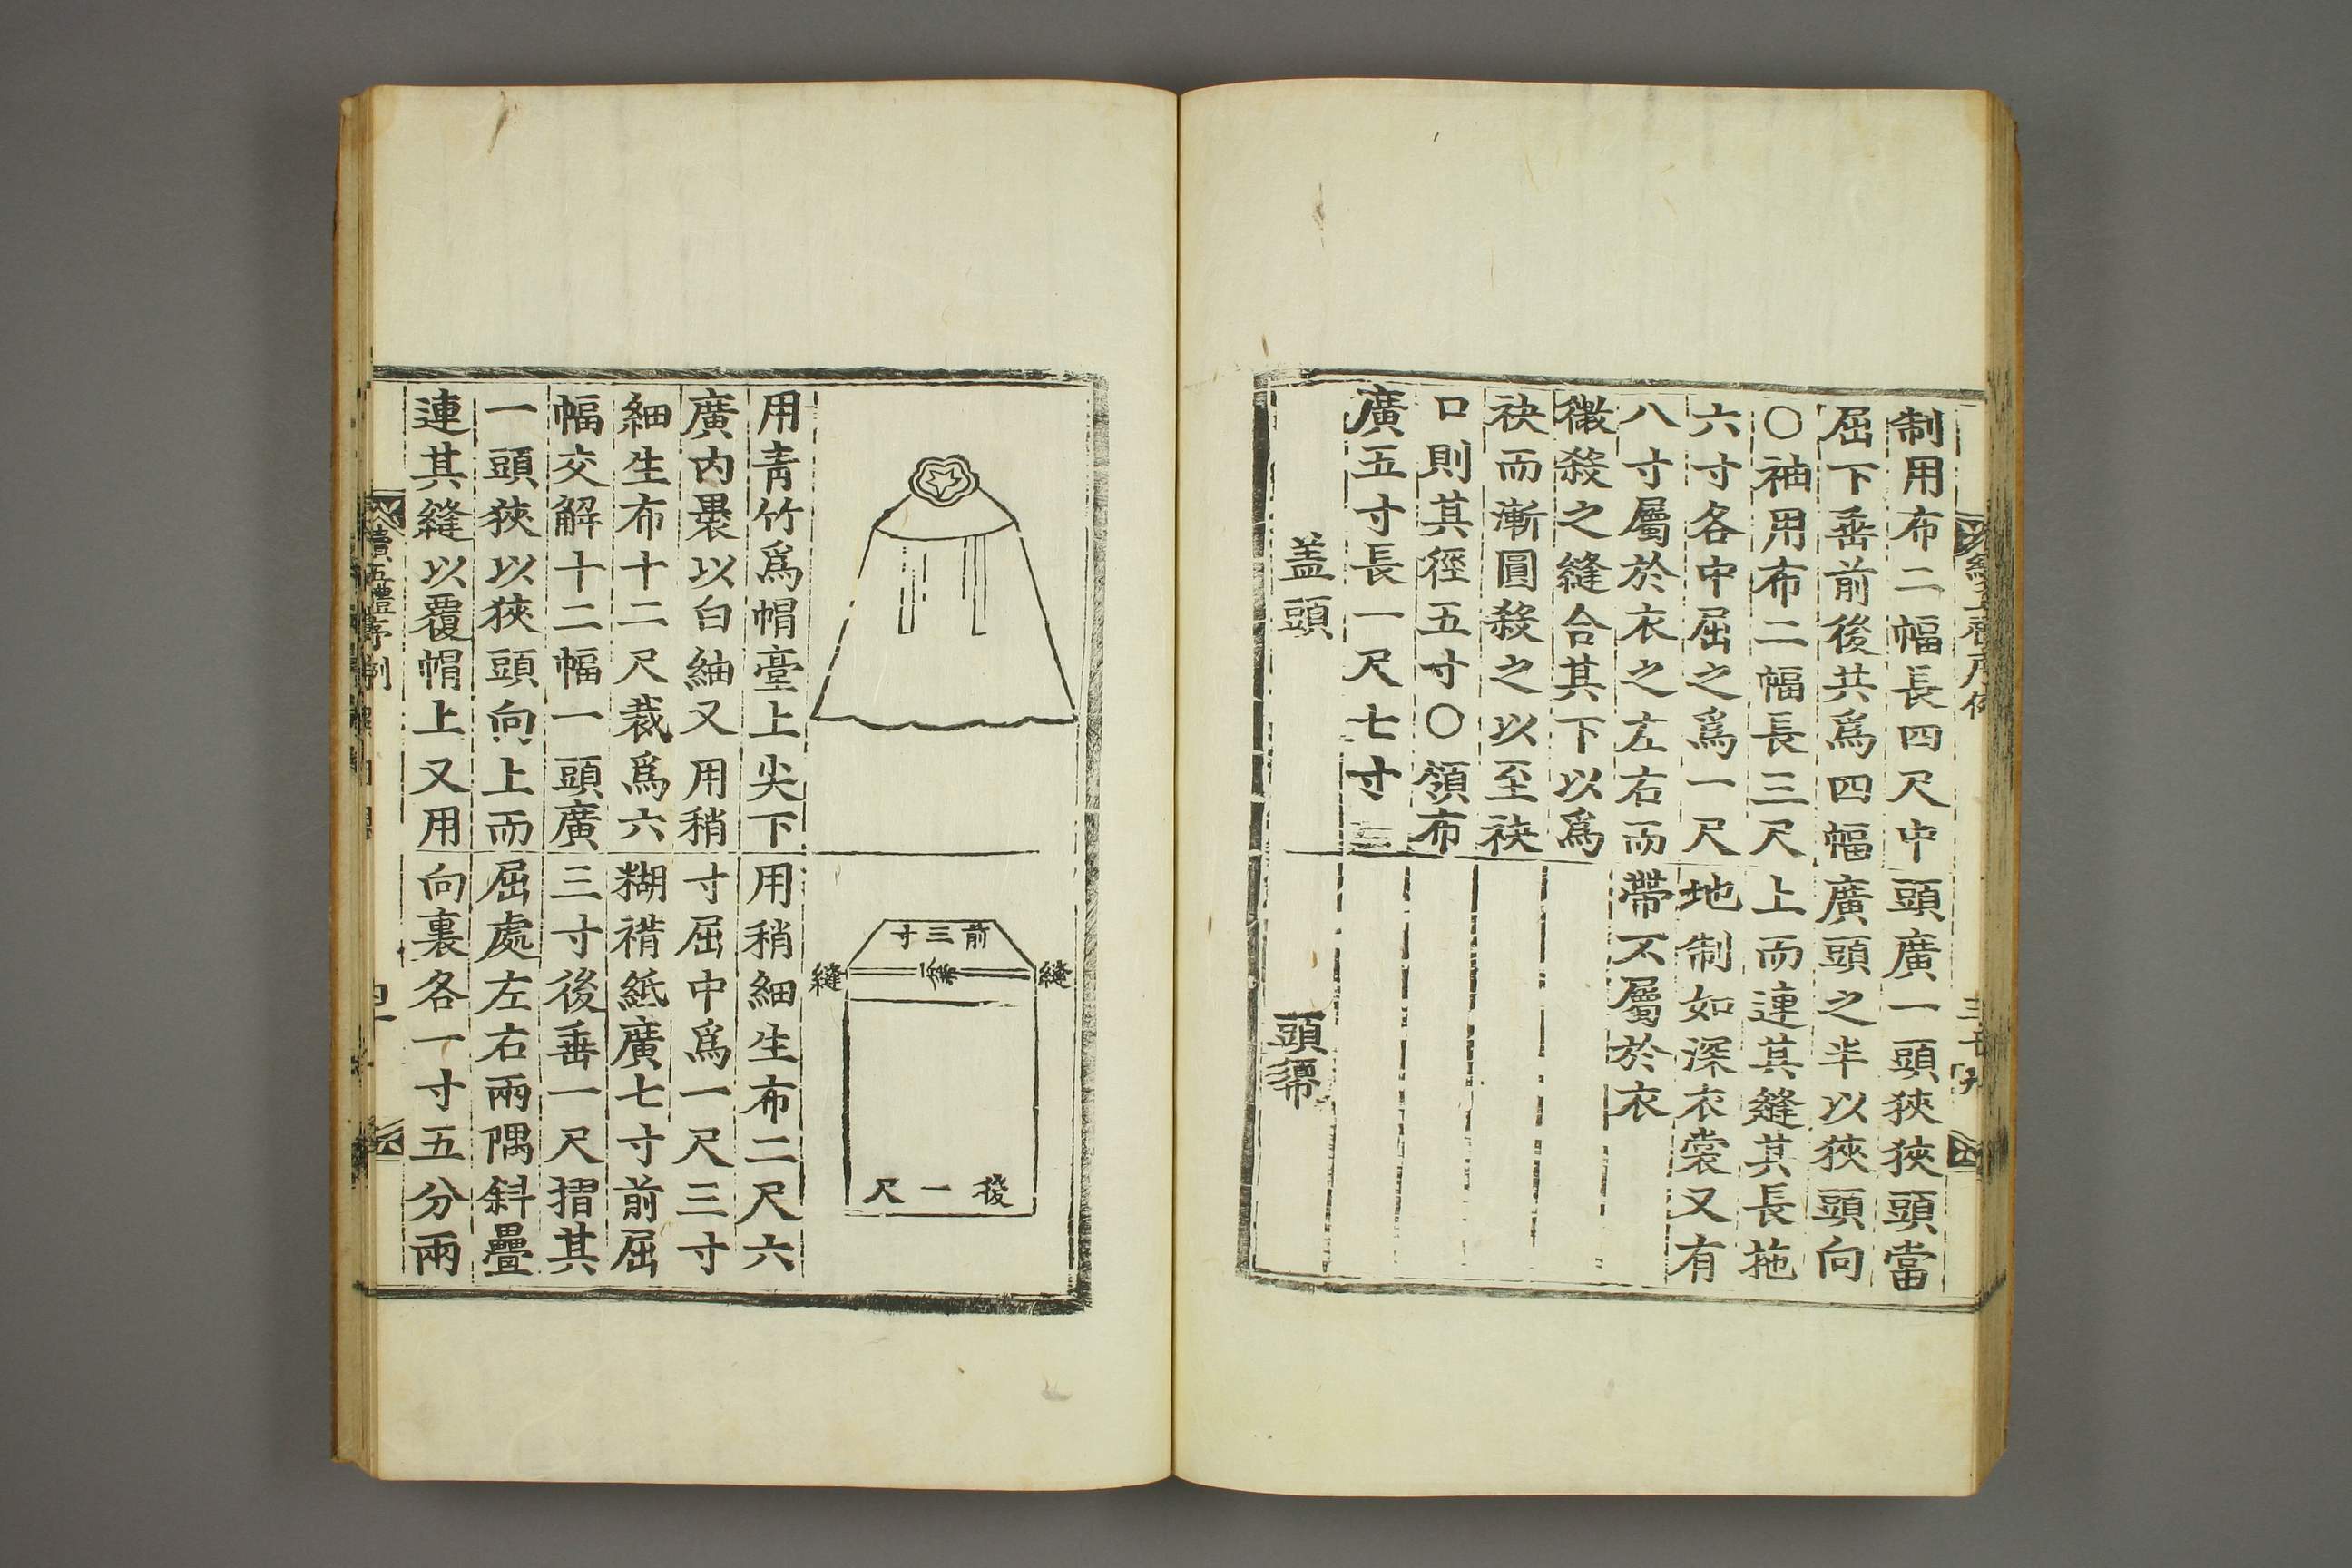 制用布二幅長四尺中
屈下垂前後共爲四幅
○袖用布二幅長三尺
六寸各中屈之爲一尺
八寸屬於衣之左右而
微殺之縫合其下以爲
袂而漸圓殺之以至袂
口則其徑五寸○領布
廣五寸長一尺七寸
盖頭
頭廣一頭狹狹頭當
廣頭之半以狹頭向
上而連其縫其長拖
地制如深衣裳又有
帶不屬於衣
頭
用青竹爲帽臺上尖下
廣内裹以白紬又用稍
細生布十二尺裁爲六
幅交解十二幅一頭廣
一頭狹以狹頭向上而
連其縫以覆帽上又用
前三寸
縫
縫
後一尺
用稍細生布二尺六
寸屈中爲一尺三寸
糊褙紙廣七寸前屈
三寸後垂一尺摺其
屈處左右兩隅斜疊
向裏各一寸五分兩